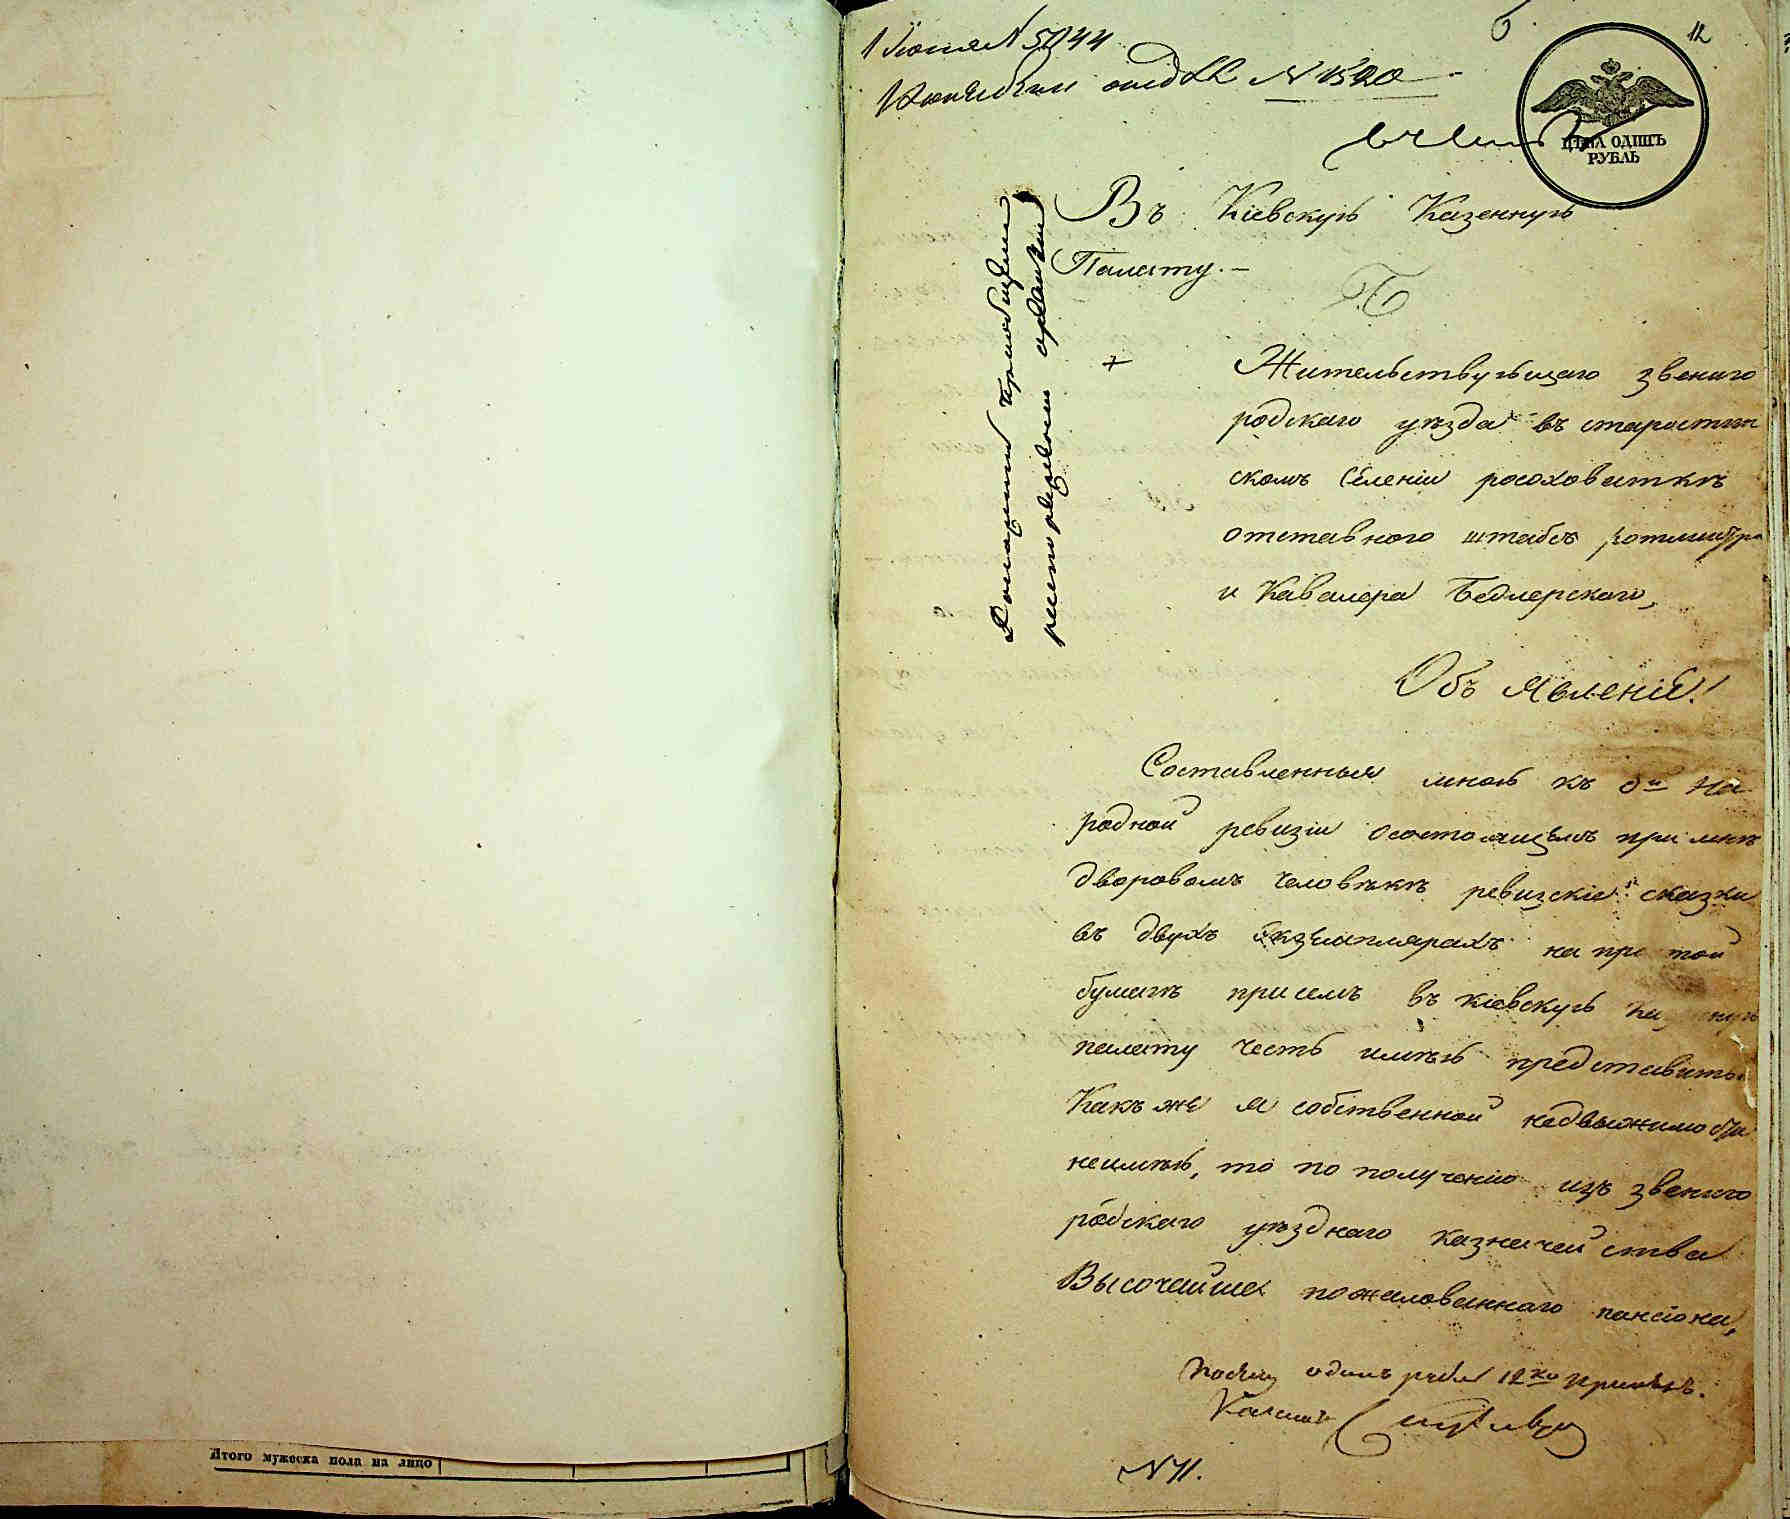 1 Июня N 5044
N 1520
12
ЦѢНА ОДИНЪ
РУБЛЬ
Въ Кіевскую Казенную
Палату.—
Жительствующаго звениго
родскаго уѣзда въ старостин
скомъ Селеніи росоховаткѣ
отставного штабсъ ротмистра
и Кавалера Бедлерскаго,
Объ Явленіе!
Составленныя мною къ 8й На
родной ревизіи осостоящемъ при мнѣ
дворовомъ человѣкѣ ревизскіе сказки
въ двухъ экземплярахъ на простой
бумагѣ присемъ въ кіевскую казенную
палату честь имѣю представить.
Какъ же я собственной недвижимости
неимѣю, то по полученію изъ звениго
родскаго уѣзднаго казначейства
Высочайше пожалованнаго пансіона,
одинъ рубль 12го
N 11.
Итого мужеска пола на лицо